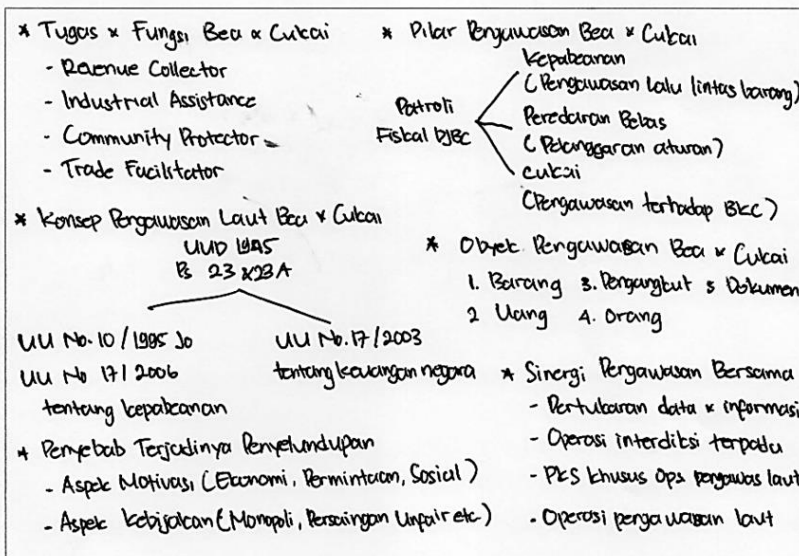 * Tugas & Fungsi Bea & Cukai
- Revenue Collector
- Industrial Assistance
- Community Protector
- Trade Facilitator
* Konsep Pengawasan Laut Bea & Cukai
UUD 1945
Ps 23 & 23A
UU No. 10 / 1995 Jo
UU No 17 / 2006
tentang kepabeanan
UU No. 17 / 2003
tentang keuangan negara
* Penyebab Terjadinya Penyelundupan
- Aspek Motivasi (Ekonomi, Permintaan, Sosial)
- Aspek Kebijakan (Monopoli, Persaingan Unfair etc)
* Pilar Pengawasan Bea & Cukai
Patroli
Fiskal DJBC
Kepabeanan
(Pengawasan lalu lintas barang)
Peredaran Bebas
(Pelanggaran aturan)
cukai
(Pengawasan terhadap BKC)
* Obyek Pengawasan Bea & Cukai
1. Barang 3. Pengangkut 5 Dokumen
2 Uang 4. Orang
* Sinergi Pengawasan Bersama
- Pertukaran data & informasi
- Operasi interdiksi terpadu
- PKS khusus Ops pengawas laut
- Operasi pengawasan laut